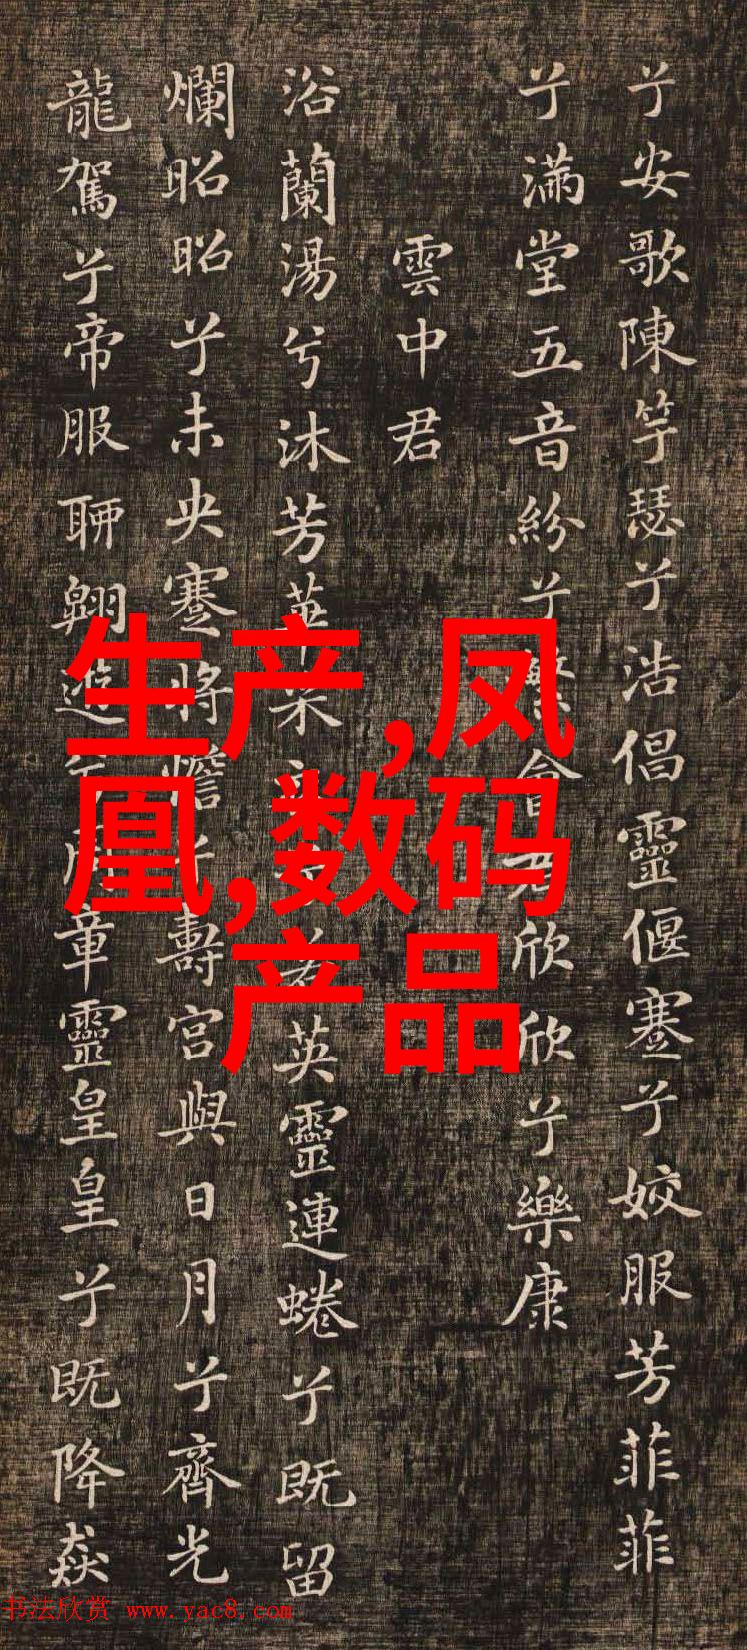 兮安歌陳竽瑟兮浩倡靈偃蹇兮姣服芳菲菲
兮滿堂五音紛兮繁會君欣欣兮樂康
雲中君
浴蘭湯兮沐芳華采衣兮若英靈連蜷兮既留
爛昭昭兮未央蹇將憺兮壽宮與日月兮齊光
龍駕兮帝服聊翱遊兮周章靈皇皇兮既降猋
生产,凤
凰,数码
产品
书法欣赏 www.yac8.com